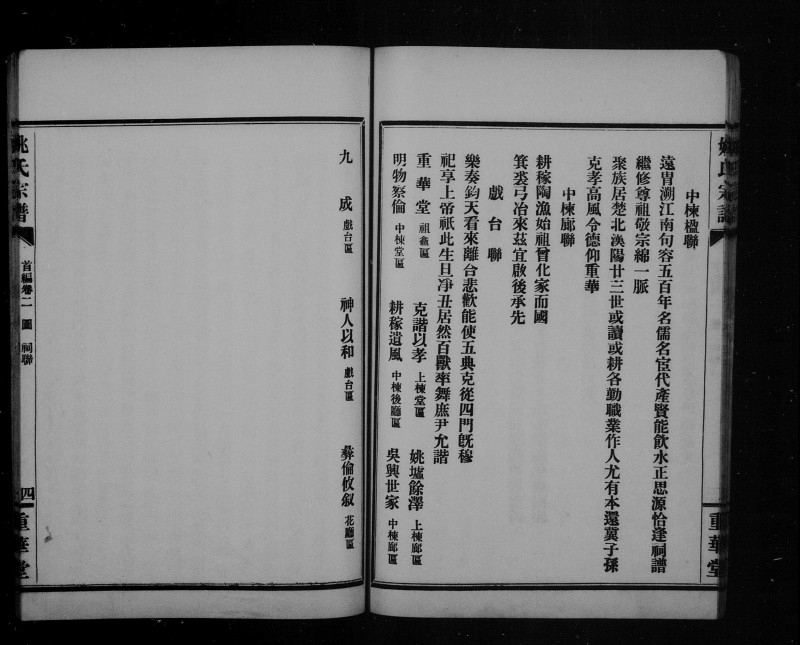 姚氏宗譜
重華堂
中棟楹聯
遠胄溯江南句容五百年名儒名宦代產賢能飲水正思源恰逢祠譜
繼修尊祖敬宗綿一脈
聚族居楚北漢陽廿三世或讀或耕各勤職業作人尤有本還冀子孫
克孝高風令德仰重華
中棟廊聯
耕稼陶漁始祖曾化家而國
箕裘弓冶來茲宜啟後承先
戲台聯
樂奏鈞天看來離合悲歡能使五典克從四門旣穆
祀享上帝祇此生旦凈丑居然百獸率舞庶尹允諧
重華堂 祖龕區 克諧以孝 上棟堂區 姚墟餘澤 上棟廊區
明物察倫 中棟堂區 耕稼遺風 中棟後廳區 吳興世家 中棟廊區
九成 戲台區 神人以和 戲台區 彝倫攸叙 花廳區
姚氏宗譜
首編卷二 圖 祠聯
四
重華堂